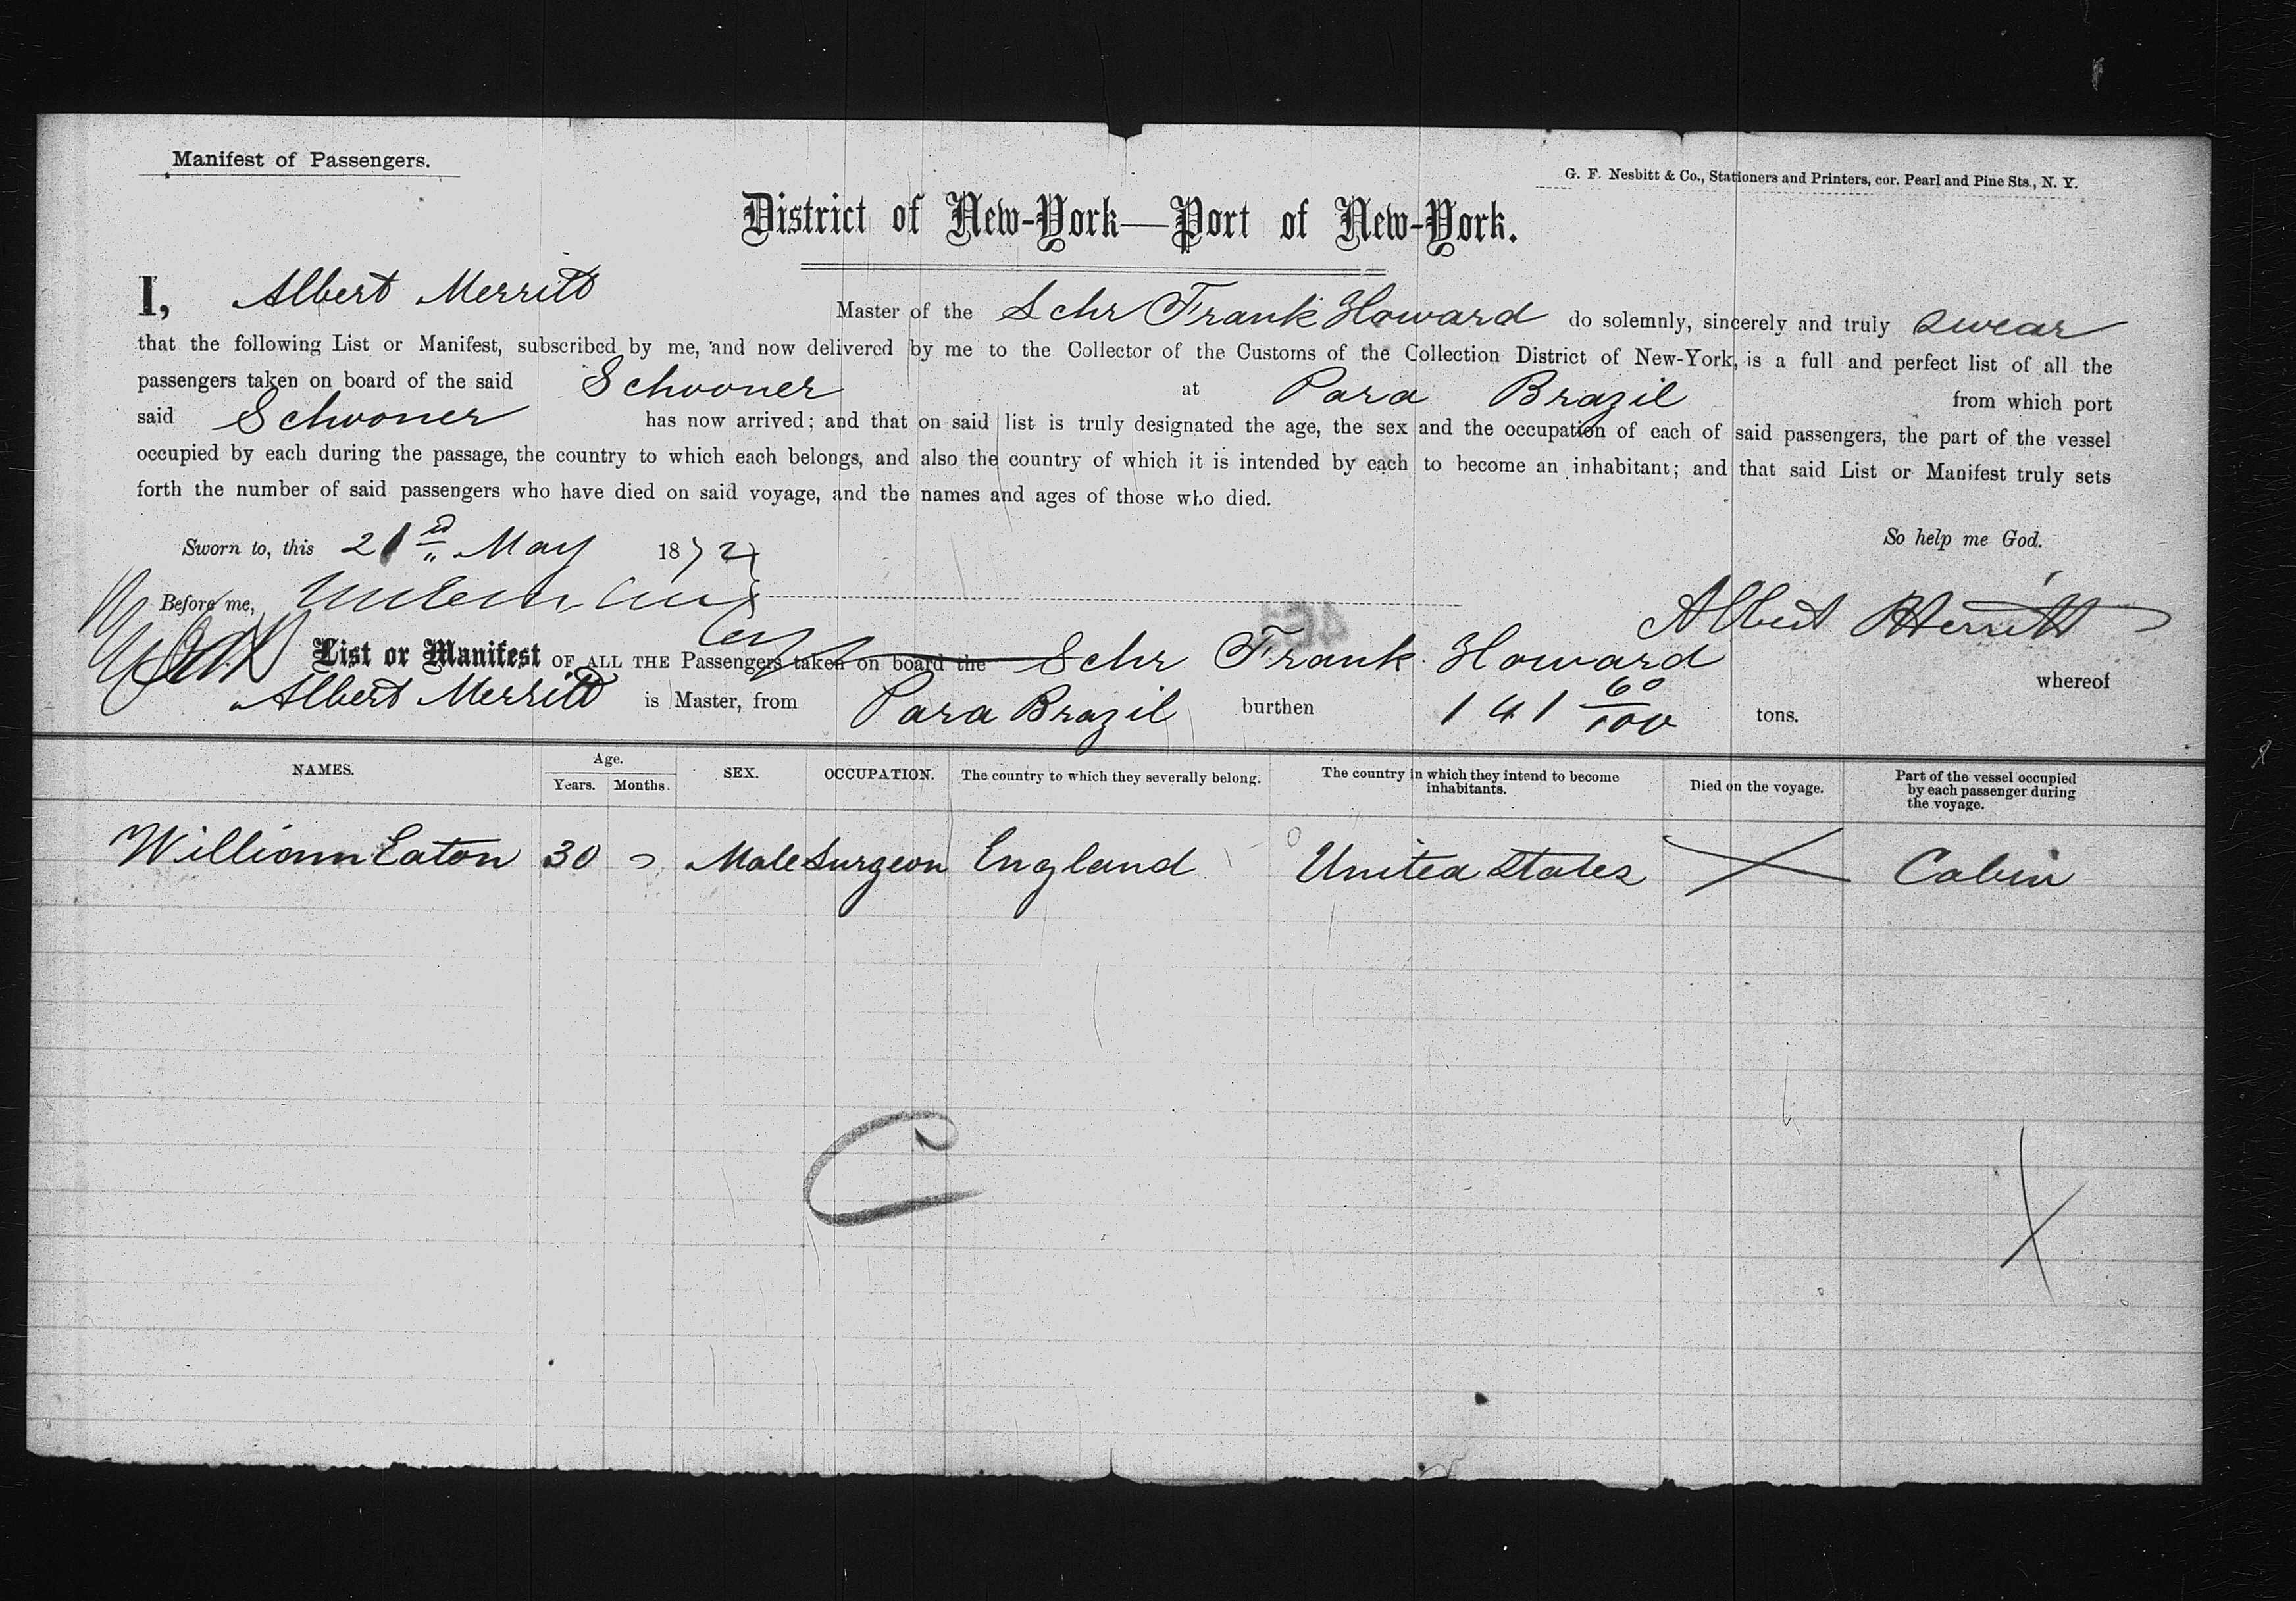 Manifest of Passengers.
G. F. Nesbitt & Co., Stationers and Printers, cor. Pearl and Pine Sts., N. Y.
District of New-York—Port of New-York.
I, Albert Merritt Master of the Schr Frank Howard do solemnly, sincerely and truly swear
that the following List or Manifest, subscribed by me, and now delivered by me to the Collector of the Customs of the Collection District of New-York, is a full and perfect list of all the
passengers taken on board of the said Schooner at Para Brazil from which port
said Schooner has now arrived; and that on said list is truly designated the age, the sex and the occupation of each of said passengers, the part of the vessel
occupied by each during the passage, the country to which each belongs, and also the country of which it is intended by each to become an inhabitant; and that said List or Manifest truly sets
forth the number of said passengers who have died on said voyage, and the names and ages of those who died.
So help me God.
Sworn to, this 21 May 1872
Before me,
Albert Merritt
List or Manifest OF ALL THE Passengers taken on board the Schr Frank Howard whereof
Albert Merritt is Master, from Para Brazil burthen 141 60/100 tons.
NAMES. Age. Years. Months. SEX. OCCUPATION. The country to which they severally belong. The country in which they intend to become inhabitants. Died on the voyage. Part of the vessel occupied by each passenger during the voyage.
William Eaton 30 Male Surgeon England United States Cabin
C